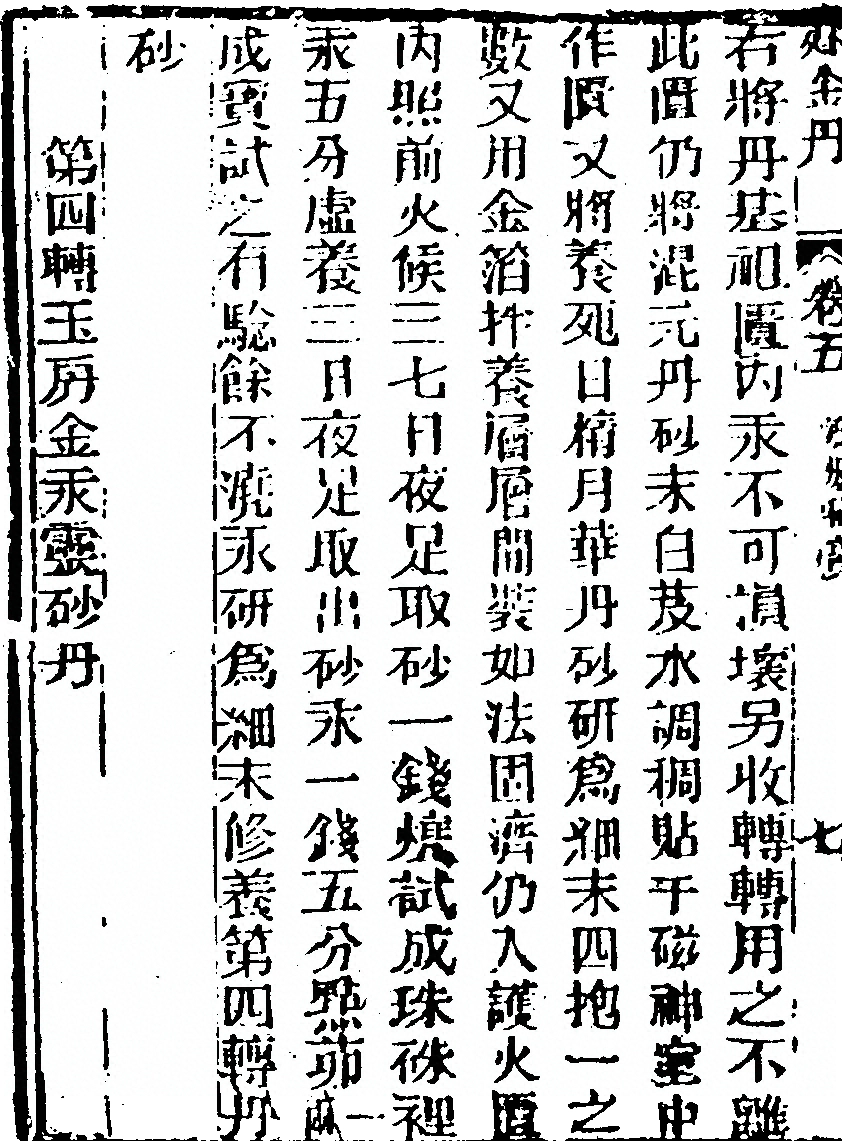 外金丹
卷五
七
若將丹基祖匱內汞不可損壞另收轉轉用之不離
此匱仍將混元丹砂末白芨水調稠貼于磁神室中
作匱又將養死日精月華丹砂研爲細末四抱一之
數又用金箔拌養層層間裝如法固濟仍入護火匱
內照前火候三七日夜足取砂一錢燒試成珠硃裡
汞五分虛養三日夜足取出砂汞一錢五分點茆一
成寶試之有驗餘不澆汞研爲細末修養第四轉丹
砂
第四轉玉房金汞靈砂丹